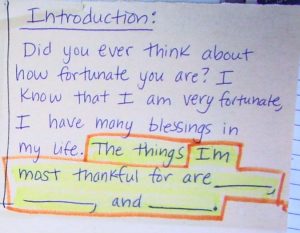 Introduction:
Did you ever think about
how fortunate you are? I
Know that I am very fortunate,
I have many blessings in
my life. The things I'm
most thankful for are ______,
______, and ______.